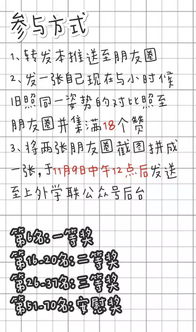 参与方式
1、转发本推送至朋友圈
2、发一张自己现在与小时候
旧照同一姿势的对比照至
朋友圈并集满18个赞
3、将两张朋友圈截图拼成
一张,于11月9日中午12点后发送
至上外学联公众号后台
第6名:一等奖
第16.20名:二等奖
第26.37名:三等奖
第51.70名:安慰奖